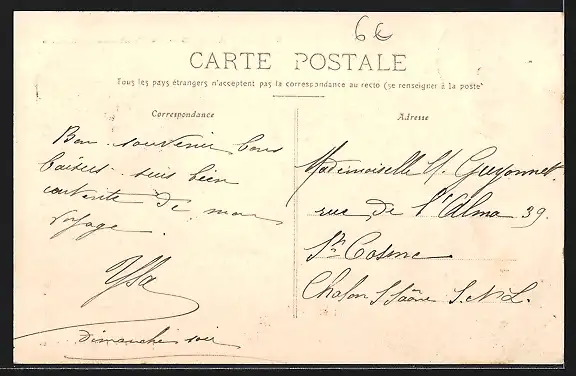 6€
CARTE POSTALE
Tous les pays étrangers n'acceptent pas la correspondance au recto (se renseigner à la poste)
Correspondance
Adresse
Bon souvenir bons
baisers suis bien
contente de mon
voyage.
Ysa
Dimanche soir
Mademoiselle M. Guyonnet
rue de l'Alma 39.
St Cosme
Chalon s/Saône S.&L.